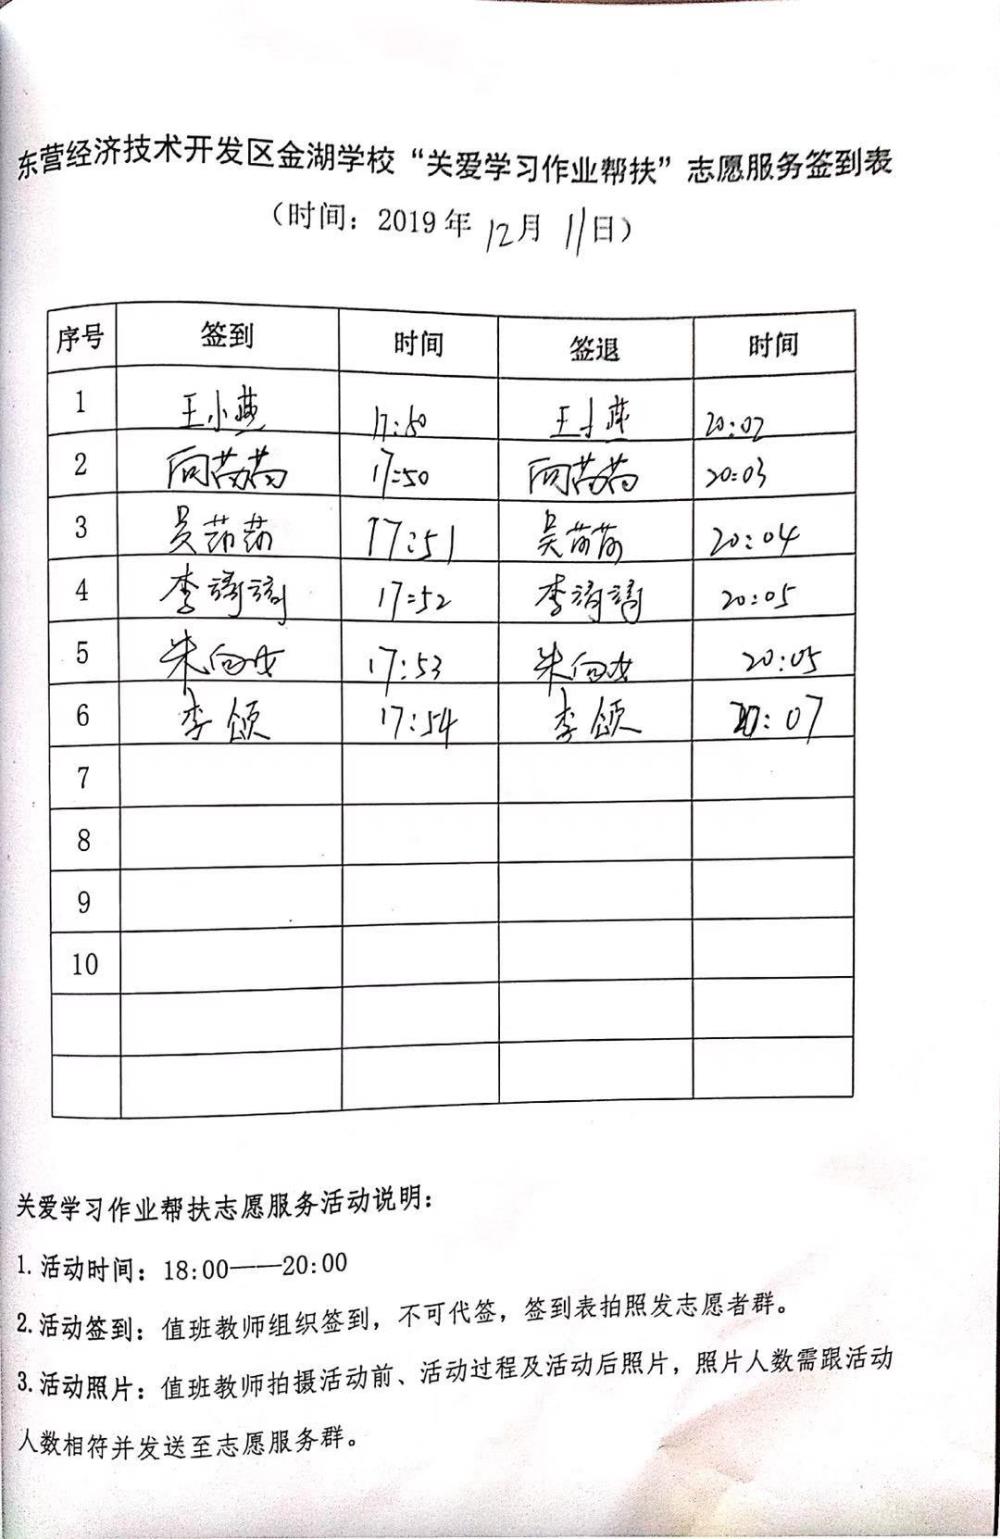 东营经济技术开发区金湖学校“关爱学习作业帮扶”志愿服务签到表
（时间：2019年 12月 11日）
序号 签到 时间 签退 时间
1 王小燕 17:50 王小燕 20:02
2 向苗苗 17:50 向苗苗 20:03
3 吴茹茹 17:51 吴茹茹 20:04
4 李 17:52 李 20:05
5 朱向女 17:53 朱向女 20:05
6 李颂 17:54 李颂 20:07
7
8
9
10
关爱学习作业帮扶志愿服务活动说明：
1.活动时间：18:00——20:00
2.活动签到：值班教师组织签到，不可代签，签到表拍照发志愿者群。
3.活动照片：值班教师拍摄活动前、活动过程及活动后照片，照片人数需跟活动
人数相符并发送至志愿服务群。